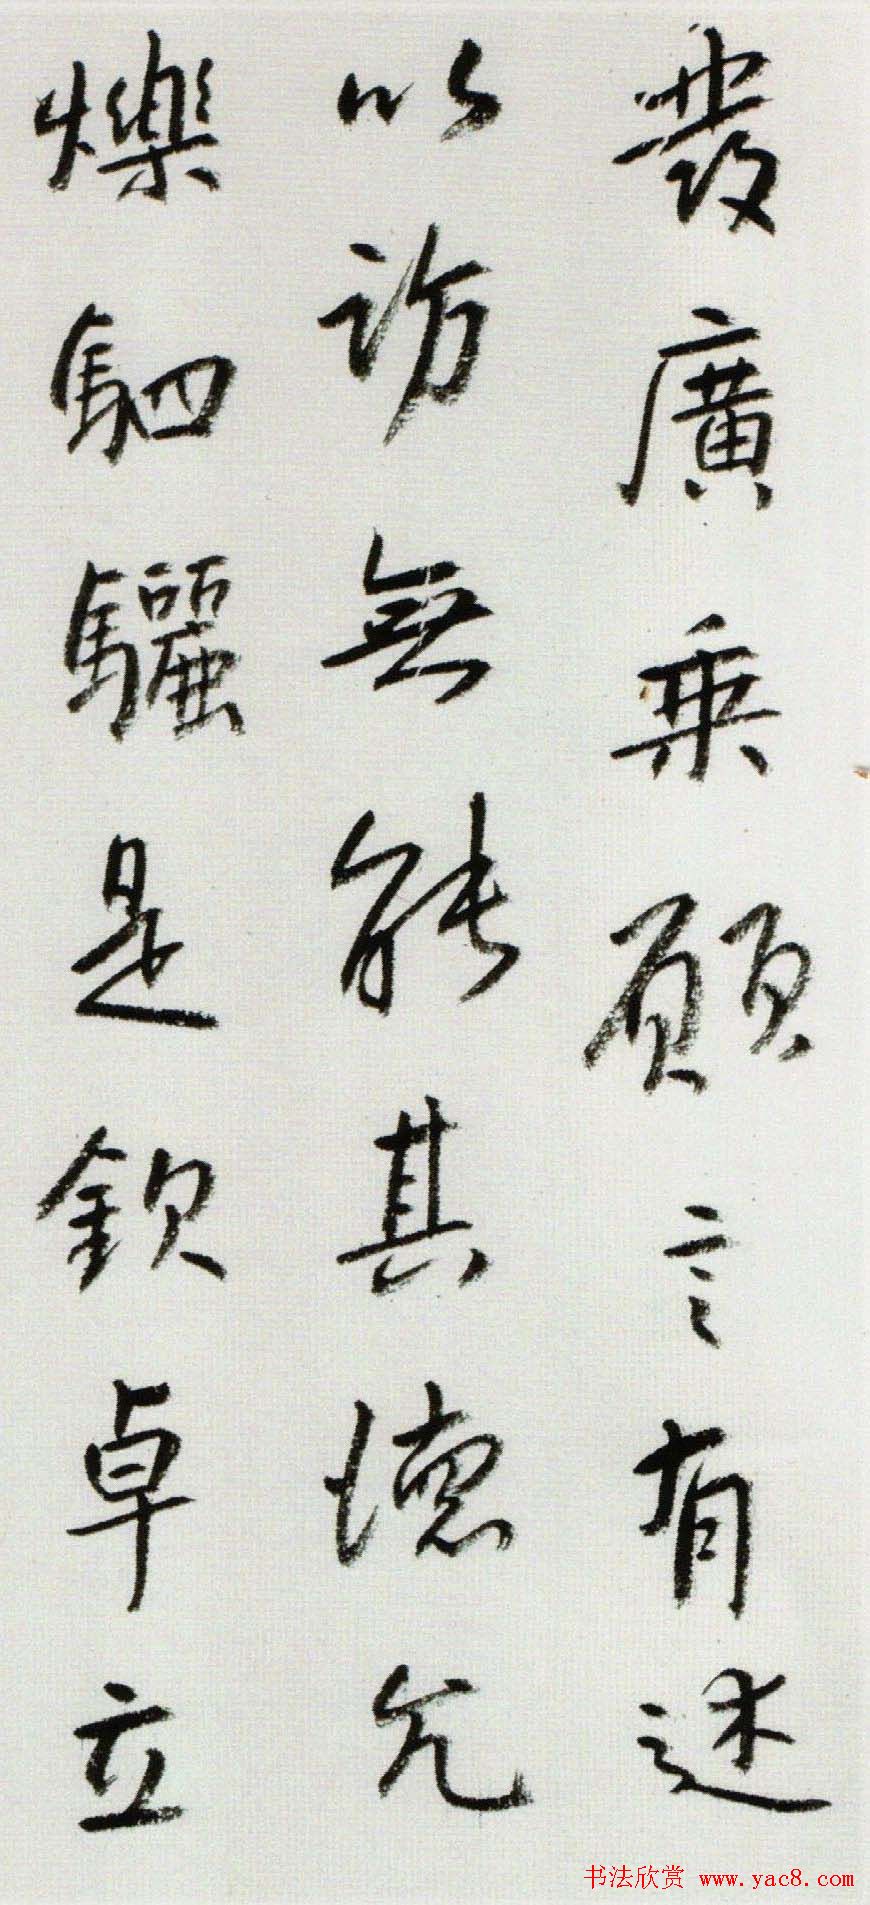 發廣乘願言有述
以訪無能其德允
爍駟驪是欽卓立
书法欣赏 www.yac8.com